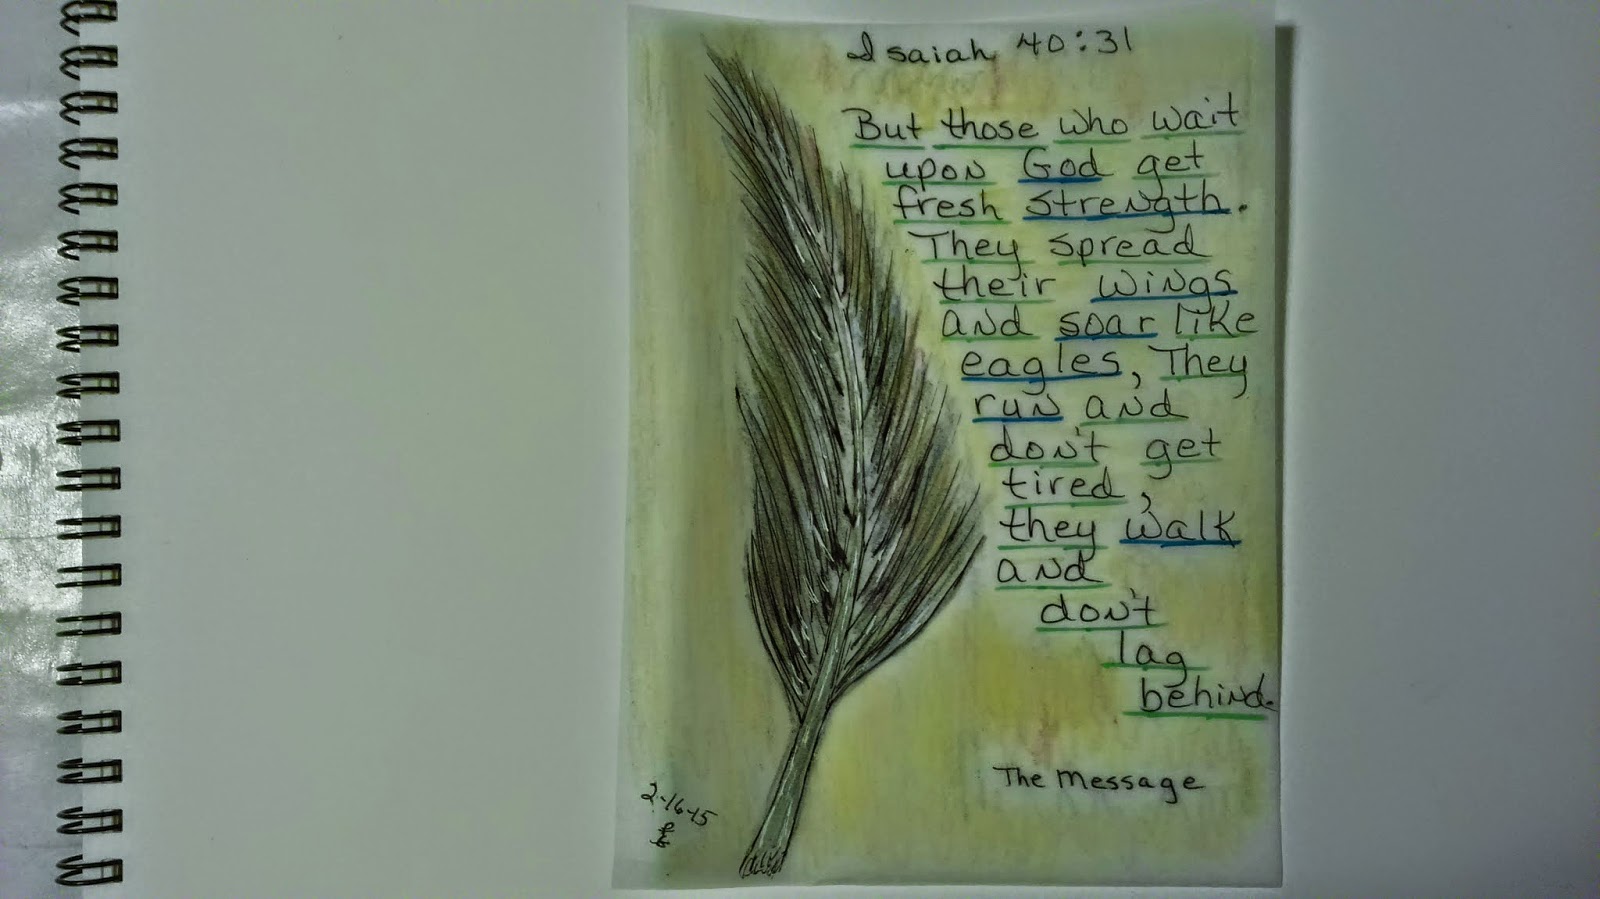 Isaiah 40:31
But those who wait
upon God get
fresh strength.
They spread
their wings
and soar like
eagles, They
run and
don't get
tired,
they walk
and
don't
lag
behind.
The Message
2-16-15